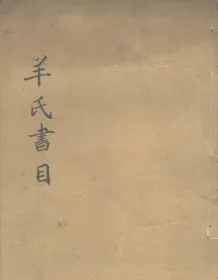 羊氏書目